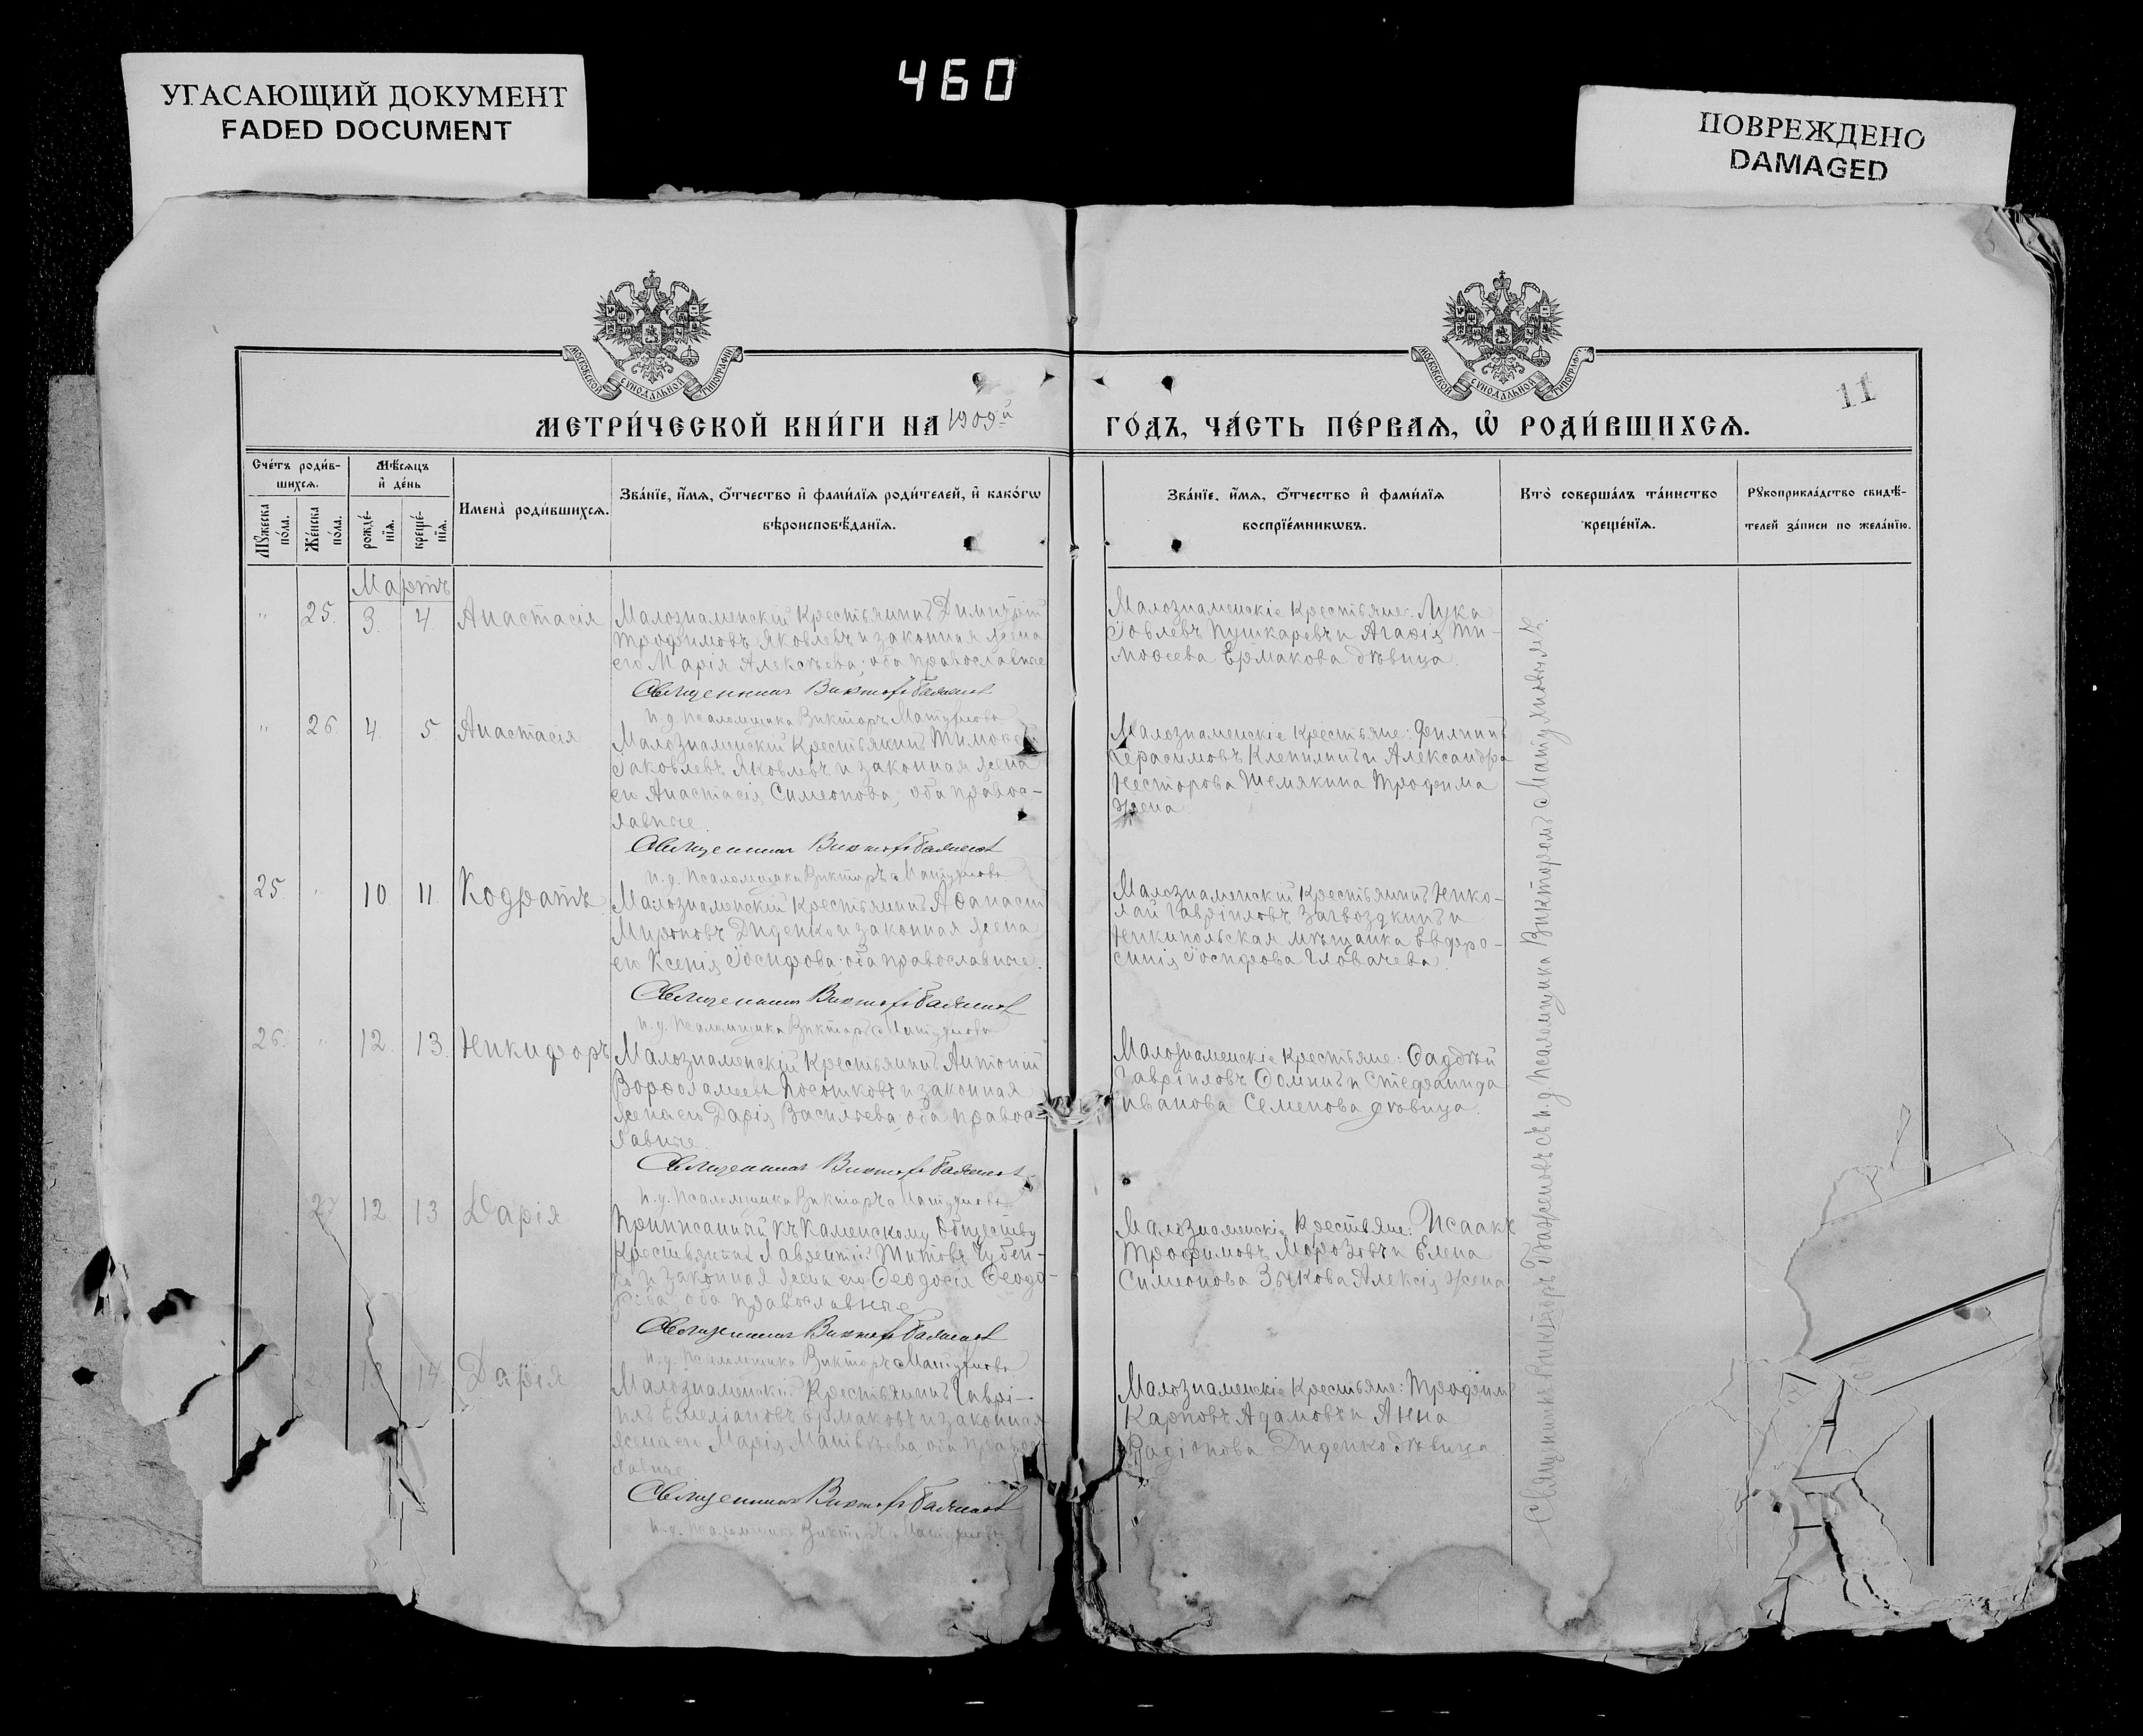 460
УГАСАЮЩИЙ ДОКУМЕНТ
FADED DOCUMENT
ПОВРЕЖДЕНО
DAMAGED
МОСКОВСКОЙ СУНОДАЛЬНОЙ ТИПОГРАФІИ
МОСКОВСКОЙ СУНОДАЛЬНОЙ ТИПОГРАФІИ
11
МЕТРИ́ЧЕСКОЙ КНИ́ГИ НА 1909й ГО́ДЪ, ЧА́СТЬ ПЕ́РВАѦ, Ѡ҆ РОДИ́ВШИХСѦ.
Сче́тъ роди́в-
шихсѧ.
Мѣ́сѧцъ
и҆ де́нь
Мꙋ́жеска по́ла.
Же́нска по́ла.
рожде́-нїѧ.
креще́-нїѧ.
Имена̀ роди́вшихсѧ.
Зва́нїе, и҆́мѧ, ѻ҆́тчество и҆ фами́лїѧ роди́телей, и҆ како́гѡ
вѣроисповѣ́данїѧ.
Зва́нїе, и҆́мѧ, ѻ҆́тчество и҆ фами́лїѧ
воспрїе́мникѡвъ.
Кто̀ соверша́лъ та́инство
креще́нїѧ.
Рꙋкоприкла́дство свидѣ́-
телей за́писи по жела́нїю.
Мартъ
" 25. 3. 4. Анастасія
Малознаменскій Крестьянинъ Димитрій
Трофимовъ Яковлевъ и законная жена
его Марія Алексѣева; оба православные
Священникъ Викторъ Баженовъ
и.д. Псаломщика Викторъ Матулновъ
Малознаменскіе Крестьяне: Лука
Іовлевъ Пушкаревъ и Агафія Ти-
моѳеева Ермакова дѣвица.
" 26. 4. 5 Анастасія
Малознаменскій Крестьянинъ Тимоѳей
Іаковлевъ Яковлевъ и законная жена
его Анастасія Симеонова; оба правос-
лавные.
Священникъ Викторъ Баженовъ
и.д. Псаломщика Викторъ
Малознаменскіе Крестьяне: Филиппъ
Герасимовъ и Александра
Несторова Шемякина Трофима
жена.
25 " 10 11. Кодратъ
Малознаменскій Крестьянинъ Аѳанасій
Мироновъ Диденко и законная жена
его Ксенія Іосифова; оба православные.
Священникъ Викторъ Баженовъ
и.д. Псаломщика Викторъ
Малознаменскій Крестьянинъ Нико-
лай Гавріиловъ Загвоздкинъ и
Никипольская мѣщанка Евфро-
синія Іосифова Гловачева.
26. " 12. 13. Никифоръ
Малознаменскій Крестьянинъ Антоній
Варѳоломеевъ Посошковъ и законная
жена его Дарія Васильева, оба правос-
лавные.
Священникъ Викторъ Баженовъ
и.д. Псаломщика Викторъ
Малознаменскіе Крестьяне: Ѳаддѣй
Гавріиловъ Ѳоминъ и Стефанида
Иванова Семенова дѣвица.
27 12 13 Дарія
Приписанный къ Каменскому Обществу
Крестьянинъ Лаврентій Титовъ Губен-
ко и законная жена его Ѳеодосія Ѳеодо-
рова, оба православные
Священникъ Викторъ Баженовъ
и.д. Псаломщика Викторъ
Малознаменскіе Крестьяне: Исаакъ
Трофимовъ Морозовъ и Елена
Симеонова Зыкова Алексія жена
28 13 14. Дарія
Малознаменскій Крестьянинъ Гаврі-
илъ Емеліановъ Ермаковъ и законная
жена его Марія Матвѣева, оба правос-
лавные.
Священникъ Викторъ Баженовъ
и.д. Псаломщика Викторъ
Малознаменскіе Крестьяне: Трофимъ
Карповъ Адамовъ и Анна
Радіонова Диденко дѣвица.
Священникъ Викторъ Баженовъ съ и.д. Псаломщика Викторомъ